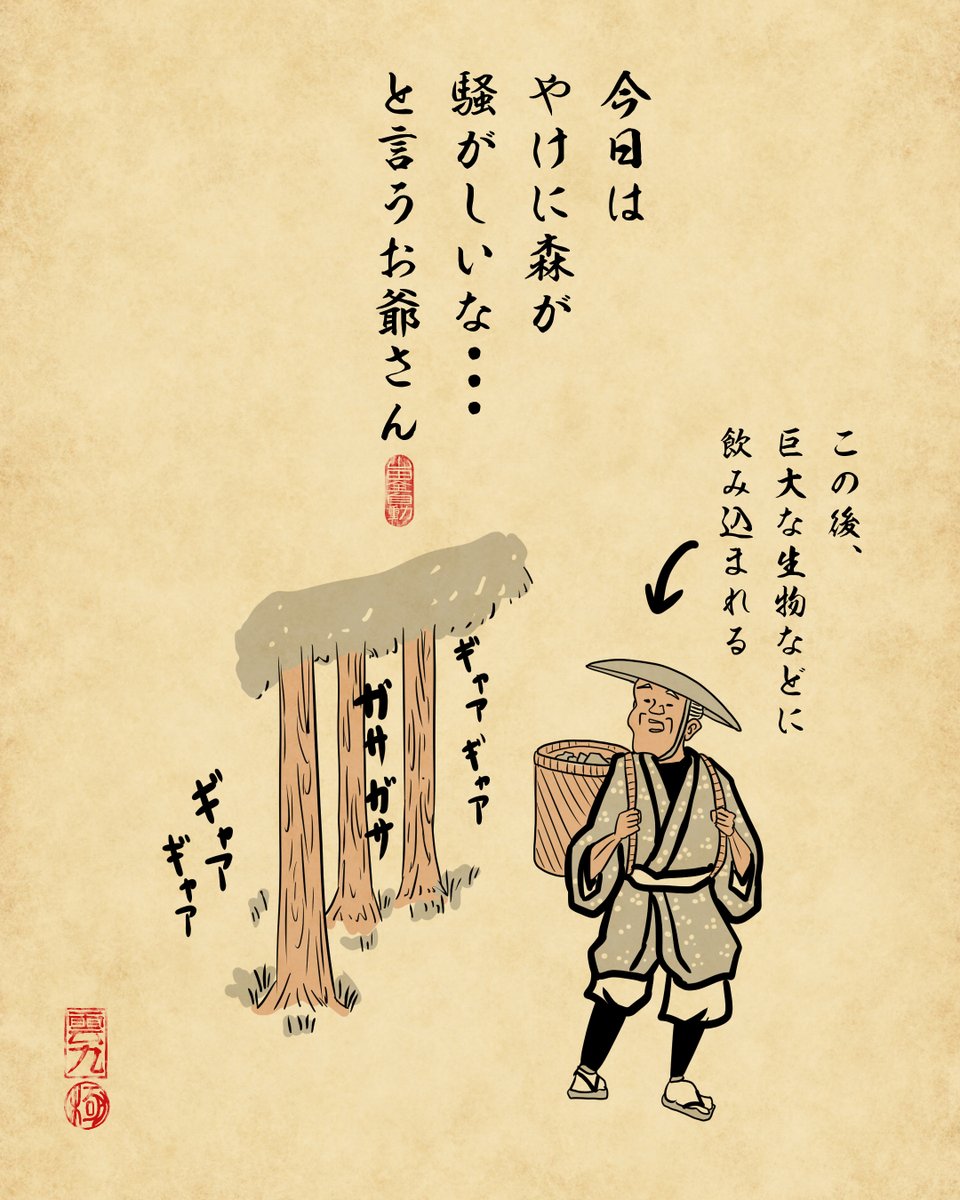 今日は
やけに森が
騒がしいな・・・
と言うお爺さん
この後、
巨大な生物などに
飲み込まれる
ギャア ギャア
ガサ ガサ
ギャア
ギャア